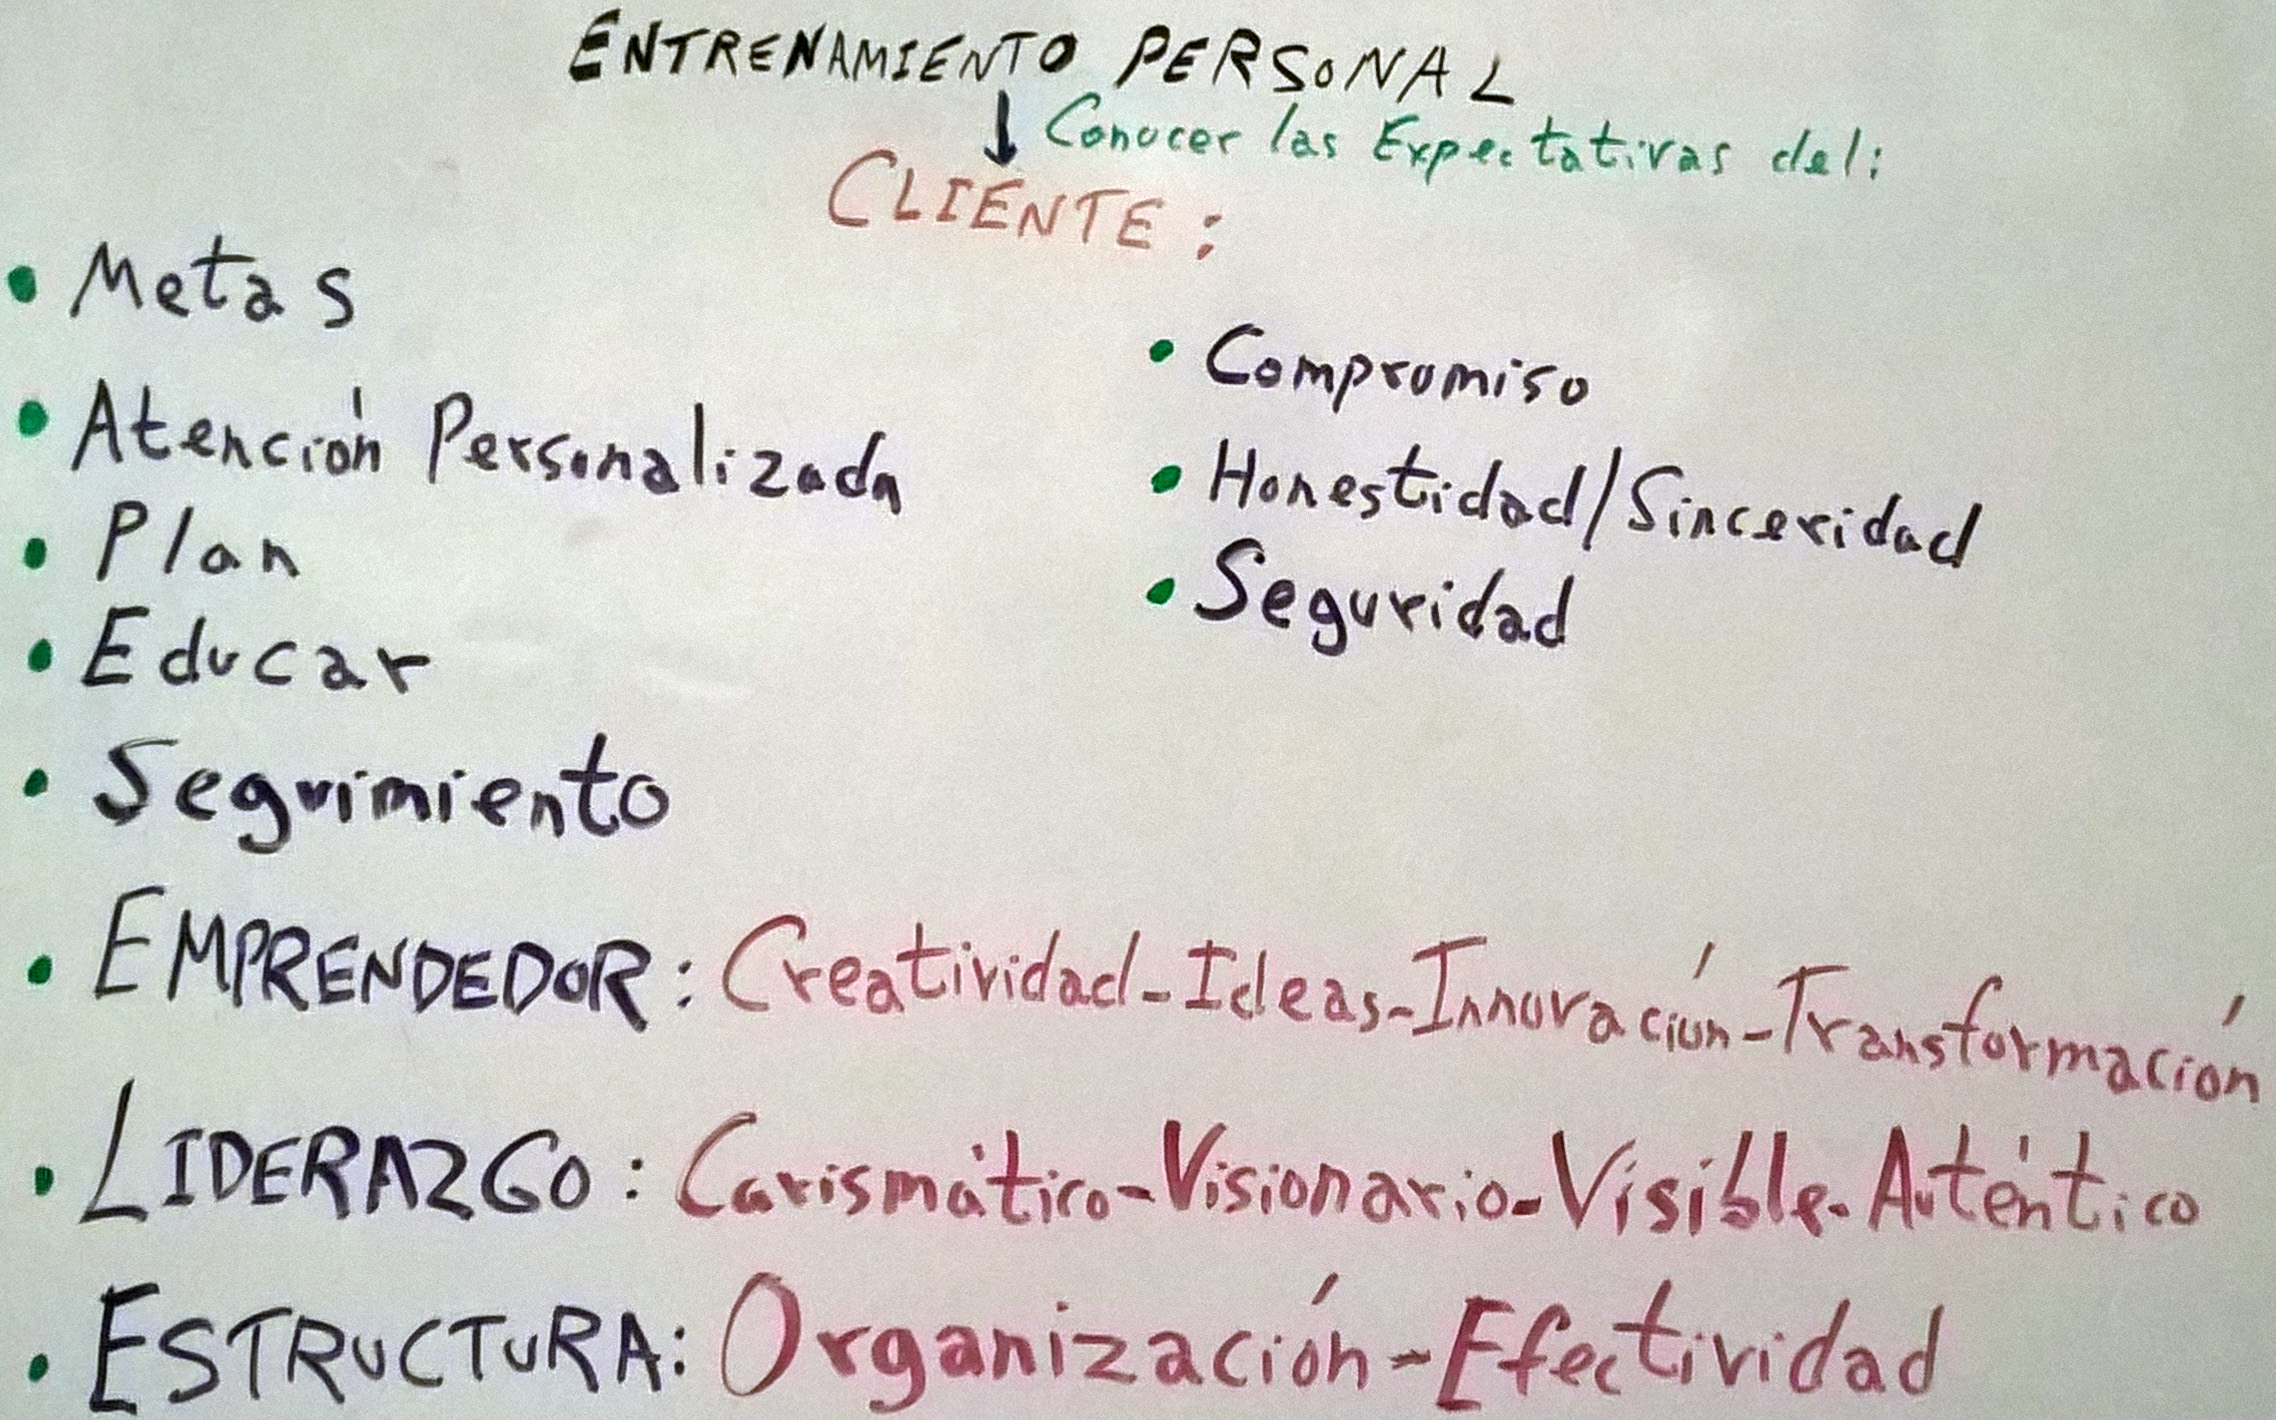 ENTRENAMIENTO PERSONAL
Conocer las Expectativas del:
CLIENTE:
• Metas
• Atención Personalizada
• Plan
• Educar
• Seguimiento
• Compromiso
• Honestidad/Sinceridad
• Seguridad
• EMPRENDEDOR: Creatividad-Ideas-Innovación-Transformación
• LIDERAZGO: Carismático-Visionario-Visible-Auténtico
• ESTRUCTURA: Organización-Efectividad